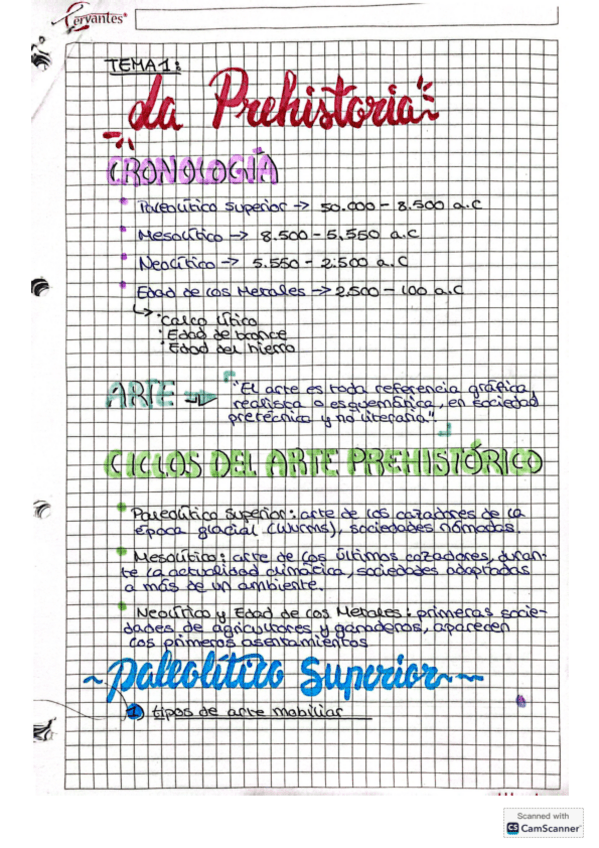 Cervantes®
TEMA 1:
La Prehistoria
CRONOLOGÍA
Paleolítico Superior -> 50.000 - 8.500 a.C
Mesolítico -> 8.500 - 5.550 a.C
Neolítico -> 5.550 - 2.500 a.C
Edad de los Metales -> 2.500 - 100 a.C
Calco lítico
Edad de bronce
Edad del hierro
ARTE
"El arte es toda referencia gráfica,
realista o esquemática, en sociedad
pretécnica y no literaria"
CICLOS DEL ARTE PREHISTÓRICO
Paleolítico Superior: arte de los cazadores de la
época glacial (Wurms), sociedades nómadas.
Mesolítico: arte de los últimos cazadores, duran-
te la actualidad climática, sociedades adaptadas
a más de un ambiente.
Neolítico y Edad de los Metales: primeras socie-
dades de agricultores y ganaderos, aparecen
los primeros asentamientos
~Paleolítico Superior~
1) tipos de arte mobiliar
Scanned with
CS CamScanner